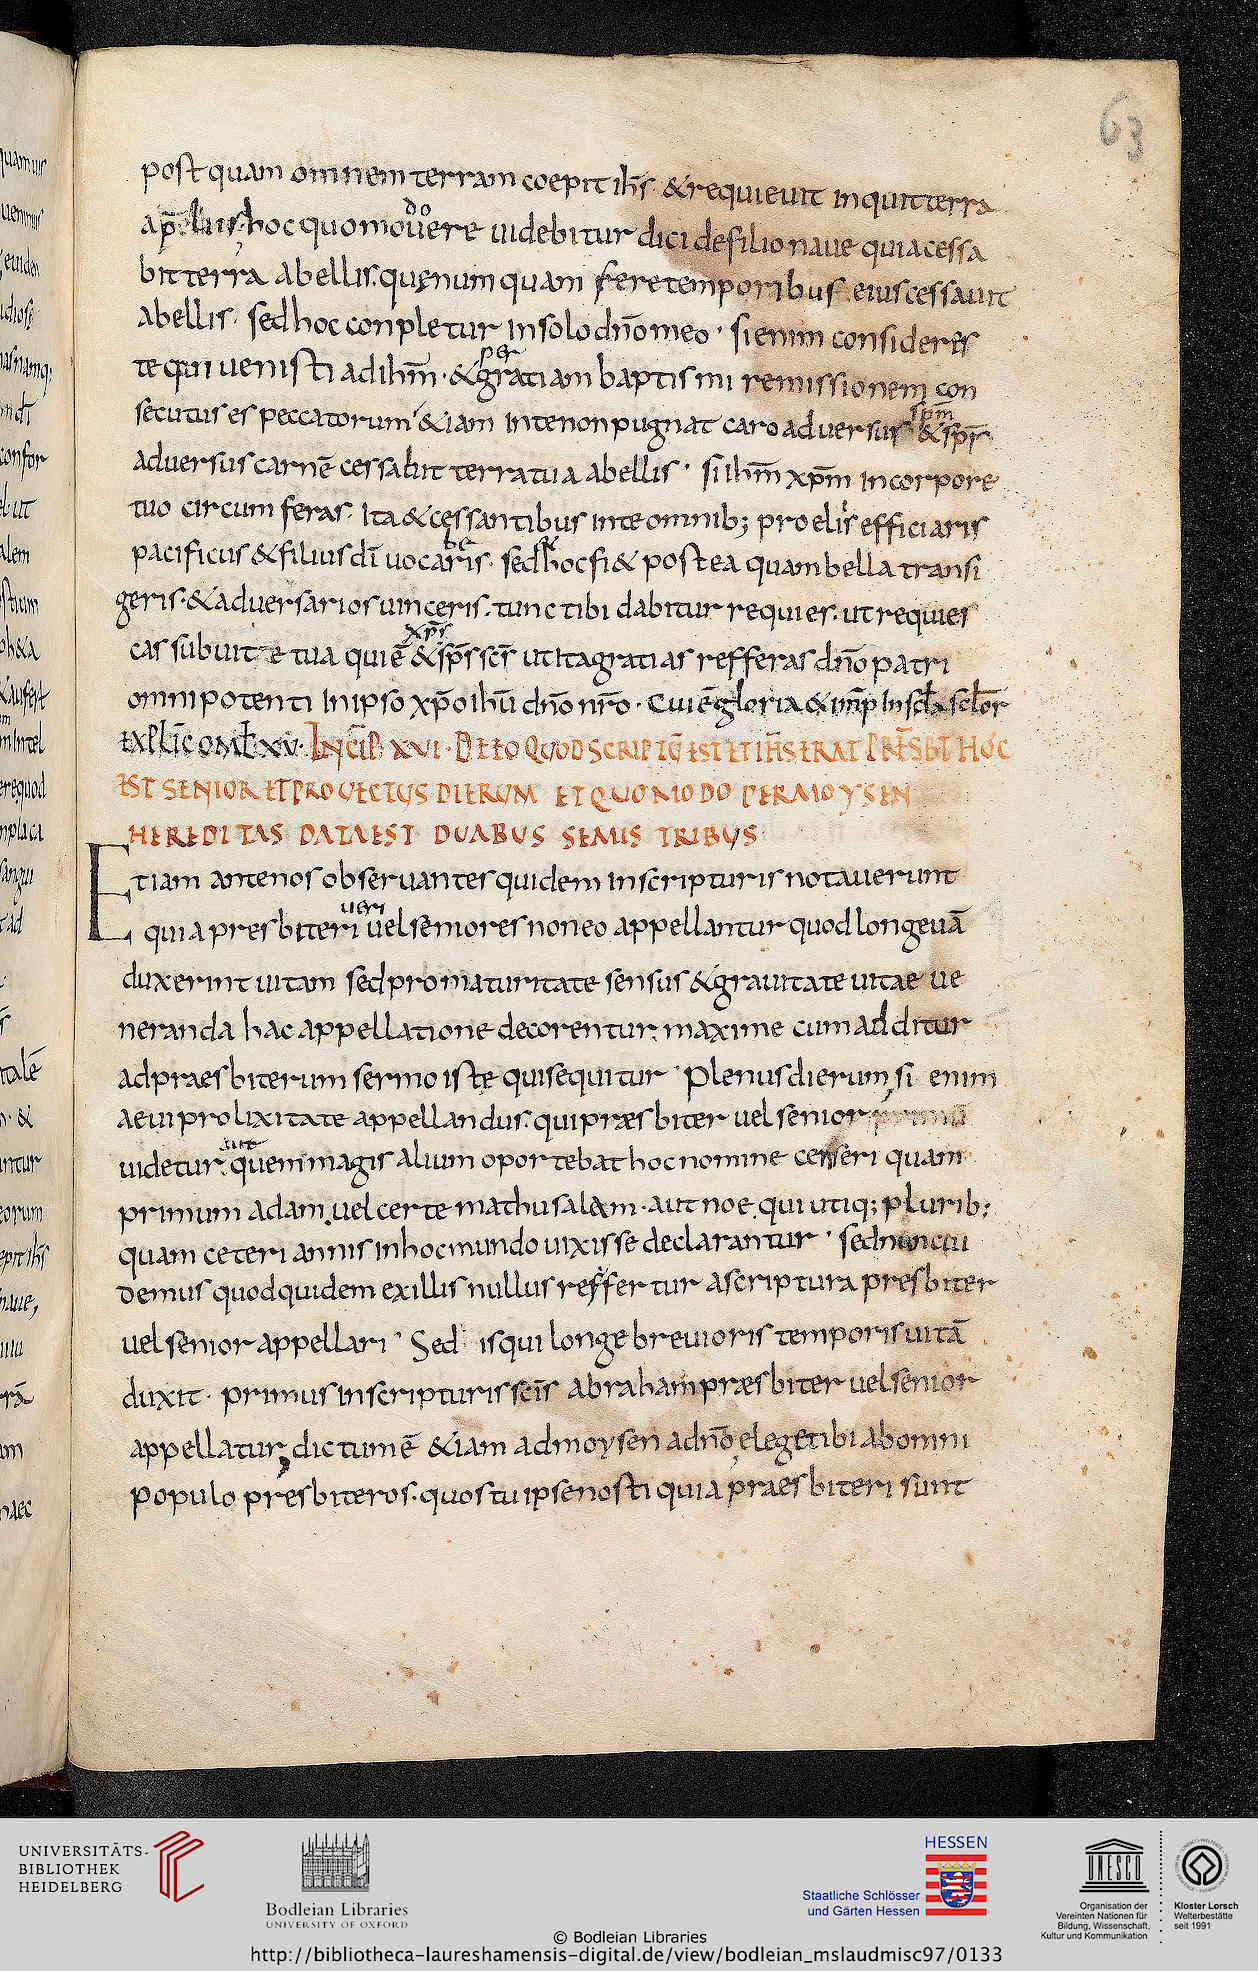 63
postquam omnem terram coepit ihs̄ · & requieuit inquit terra
bit terra abellis. quę numquam fere temporibus eius cessauit
abellis · sed hoc conpletur in solo dn̄o meo · si enim consideres
te qui uenisti ad ihm̄ · & per gratiam baptismi remissionem con
secutus es peccatorum & iam in te non pugnat caro aduersus spm̄ & sps̄
aduersus carnē cessabit terra tua abellis · si ihm̄ xpm̄ in corpore
tuo circumferas. Ita & cessantibus in te omnib; proeliis efficiaris
pacificus & filius dī uocaberis · sed hoc fi& postea quam bella transi
geris · & aduersarios uinceris. tunc tibi dabitur requies. ut requies
cas sub uite tua quiē xps̄ & sps̄ scs̄ ut Ita gratias refferas dn̄o patri
omnipotenti In ipso xpō ihū dn̄o nr̄o · Cui ē gloria & imp̄ In scl̄a scl̄or
EXPLIC̄ OML̄ XV · INCIP̄ XVI · DE EO QUOD SCRIPTŪ EST ET IHS̄ ERAT PRESBT HOC
EST SENIOR ET PROUECTUS DIERUM ET QUOMODO PER MOYSEN
HEREDITAS DATA EST DUABUS SEMIS TRIBUS
Etiam ante nos obseruantes quidem in scripturis notauerunt
quia presbiteri ueri uel seniores non eo appellantur quod longeuā
duxerint uitam sed pro maturitate sensus & grauitate uitae ue
neranda hac appellatione decorentur. maxime cum additur
ad praesbiterum sermo iste qui sequitur · Plenus dierum, si enim
aeui prolixitate appellandus. qui præsbiter uel senior
uidetur. quem magis alium oportebat hoc nomine censeri quam
primum adam. uel certe mathusalam · aut noe. qui utiq; plurib;
quam ceteri annis in hoc mundo uixisse declarantur · sed nunc ui
demus quod quidem ex illis nullus reffertur a scriptura presbiter
uel senior appellari · Sed is qui longe breuioris temporis uitā
duxit · primus in scripturis scīs abraham præsbiter uel senior
appellatur, dictum ē &iam ad moysen a dn̄o elege tibi ab omni
populo presbiteros · quos tu ipse nosti quia praesbiteri sunt
UNIVERSITÄTS-
BIBLIOTHEK
HEIDELBERG
Bodleian Libraries
UNIVERSITY OF OXFORD
HESSEN
Staatliche Schlösser
und Gärten Hessen
UNESCO
Organisation der
Vereinten Nationen für
Bildung, Wissenschaft,
Kultur und Kommunikation
Kloster Lorsch
Welterbestätte
seit 1991
© Bodleian Libraries
http://bibliotheca-laureshamensis-digital.de/view/bodleian_mslaudmisc97/0133